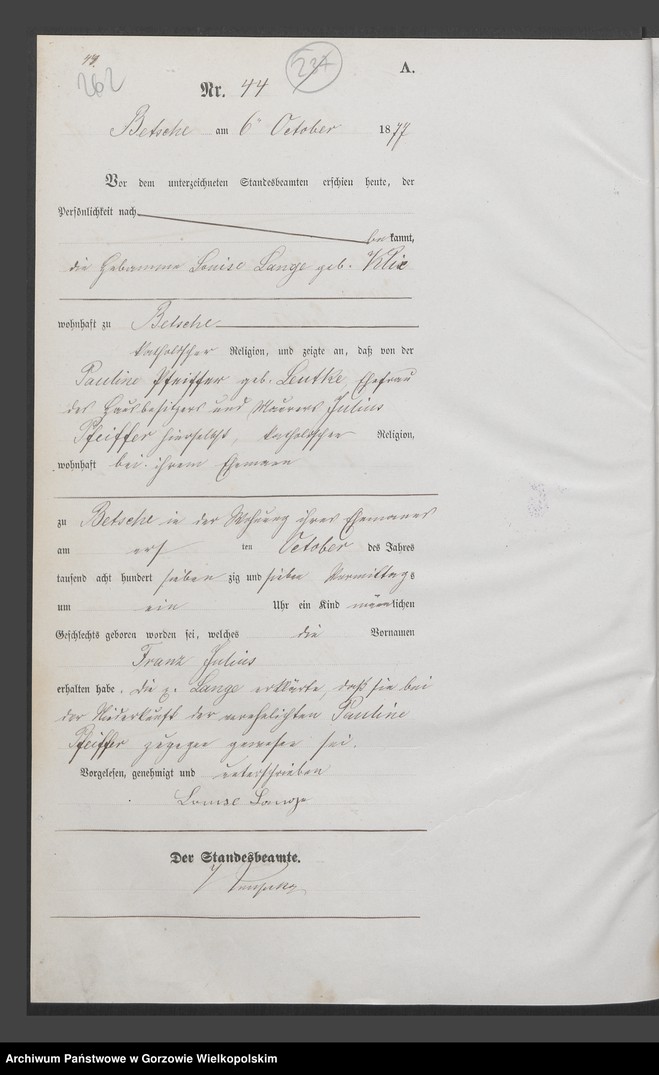 44.
262
234
A.
Nr. 44
Betsche am 6 October 1877
Vor dem unterzeichneten Standesbeamten erschien heute, der
Persönlichkeit nach
bekannt,
die Hebamme Louise Lange geb. Klix
wohnhaft zu Betsche
katholischer Religion, und zeigte an, daß von der
Pauline Pfeiffer geb. Leutke, Ehefrau
des Hausbesitzers und Maurers Julius
Pfeiffer hierselbst, katholischer Religion,
wohnhaft bei ihrem Ehemann
zu Betsche in der Wohnung ihres Ehemannes
am ersten October des Jahres
tausend acht hundert siebenzig und sieben Vormittags
um ein Uhr ein Kind männlichen
Geschlechts geboren worden sei, welches die Vornamen
Franz Julius
erhalten habe. Die p. Lange erklärte, daß sie bei
der Niederkunft der verehelichten Pauline
Pfeiffer zugegen gewesen sei.
Vorgelesen, genehmigt und unterschrieben
Louise Lange
Der Standesbeamte.
Archiwum Państwowe w Gorzowie Wielkopolskim